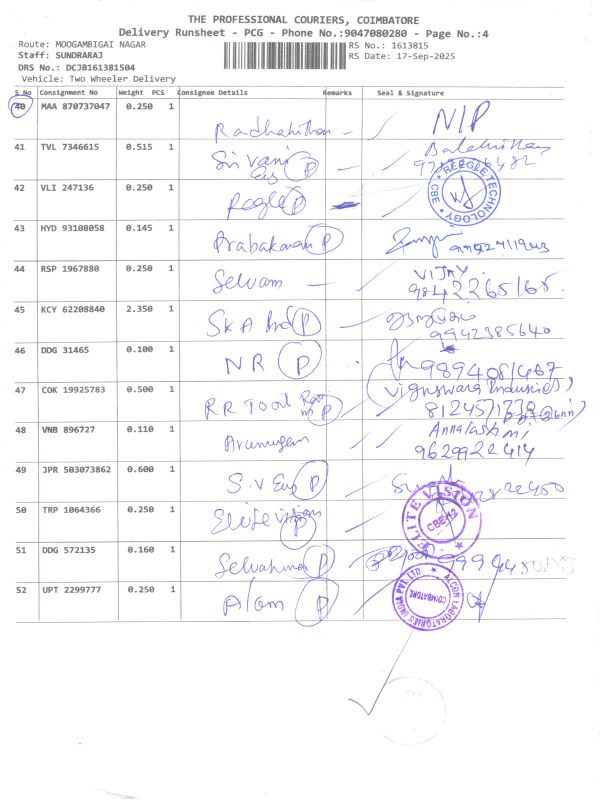 THE PROFESSIONAL COURIERS, COIMBATORE
Delivery Runsheet - PCG - Phone No.:9047080280 - Page No.:4
Route: MOOGAMBIGAI NAGAR RS No.: 1613815
Staff: SUNDRARAJ RS Date: 17-Sep-2025
DRS No.: DCJB161381504
Vehicle: Two Wheeler Delivery
S No Consignment No Weight PCS Consignee Details Remarks Seal & Signature
40 MAA 870737047 0.250 1
Radhakithan - N/P
41 TVL 7346615 0.515 1
Sri Vani P
42 VLI 247136 0.250 1
REEGLE TECHNOLOGY CBE
43 HYD 93108058 0.145 1
Arabakaran P
44 RSP 1967880 0.250 1
Selvam - VIJAY
9842265168
45 KCY 62208840 2.350 1
SKA P
9942385640
46 DDG 31465 0.100 1
NR P 9894081467
47 COK 19925783 0.500 1
RR Tool P
8124571738
48 VNB 896727 0.110 1
Arumugam
9629922414
49 JPR 503073862 0.600 1
S.V P
50 TRP 1064366 0.250 1
Elite Vision P ELITE VISION
51 DDG 572135 0.160 1
P
52 UPT 2299777 0.250 1
P ALCON LABORATORIES (INDIA) PVT. LTD COIMBATORE